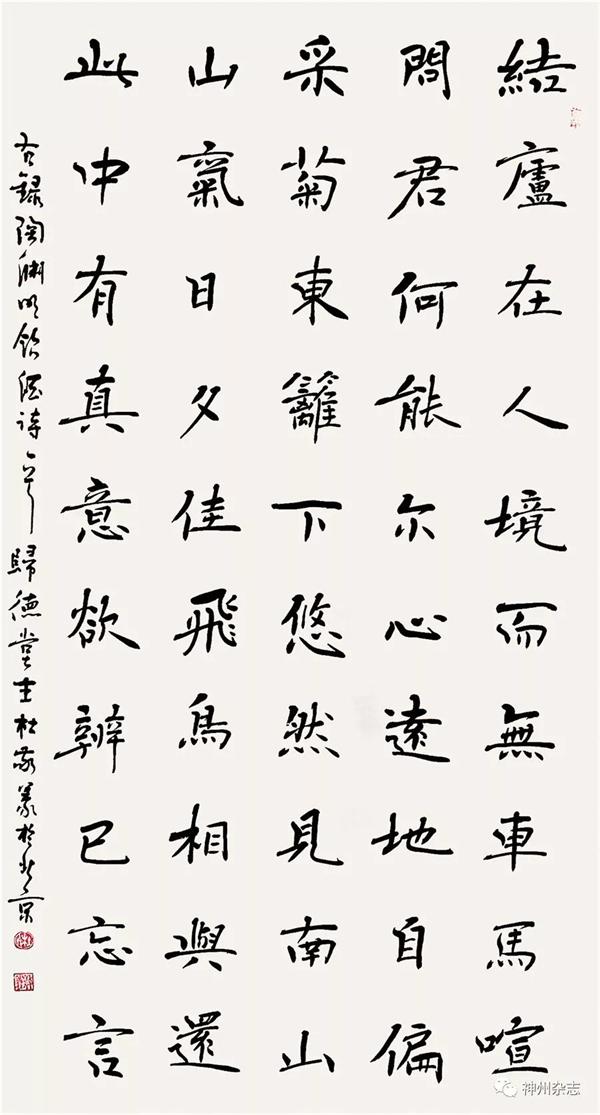 結廬在人境而無車馬喧
問君何能尔心遠地自偏
采菊東籬下悠然見南山
山氣日夕佳飛鳥相與還
此中有真意欲辨已忘言
右録陶渊明飲酒詩一首 歸德堂主杜敬義於北京
神州杂志